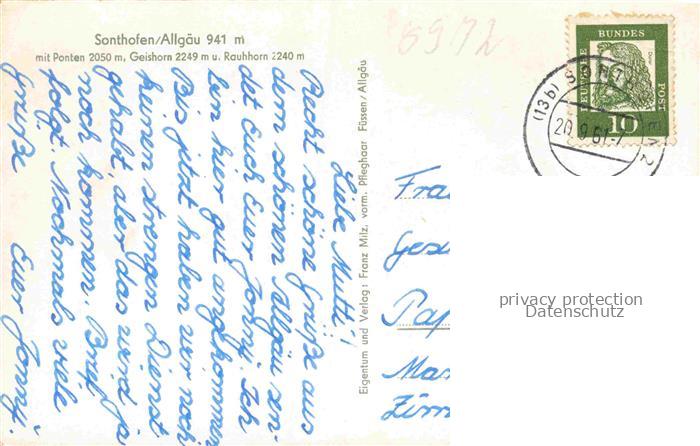 Sonthofen/Allgäu 941 m
mit Ponten 2050 m, Geishorn 2249 m u. Rauhhorn 2240 m
6972
Liebe Mutti!
Recht schöne Grüße aus
dem schönen Allgäu sen
det Euch Euer Jonny. Ich
bin hier gut angekommen
Bis jetzt haben wir noch
keinen strengen Dienst
gehabt, aber das wird ja
noch kommen. Brief
folgt. Nochmals viele
Grüße Euer Jonny.
Eigentum und Verlag: Franz Milz, vorm. Pfleghaar Füssen/Allgäu
DEUTSCHE BUNDES POST
Dürer
10
(13b)
20.9.61-7
Fra
Gesc
Pap
Mar
Zirn
privacy protection
Datenschutz